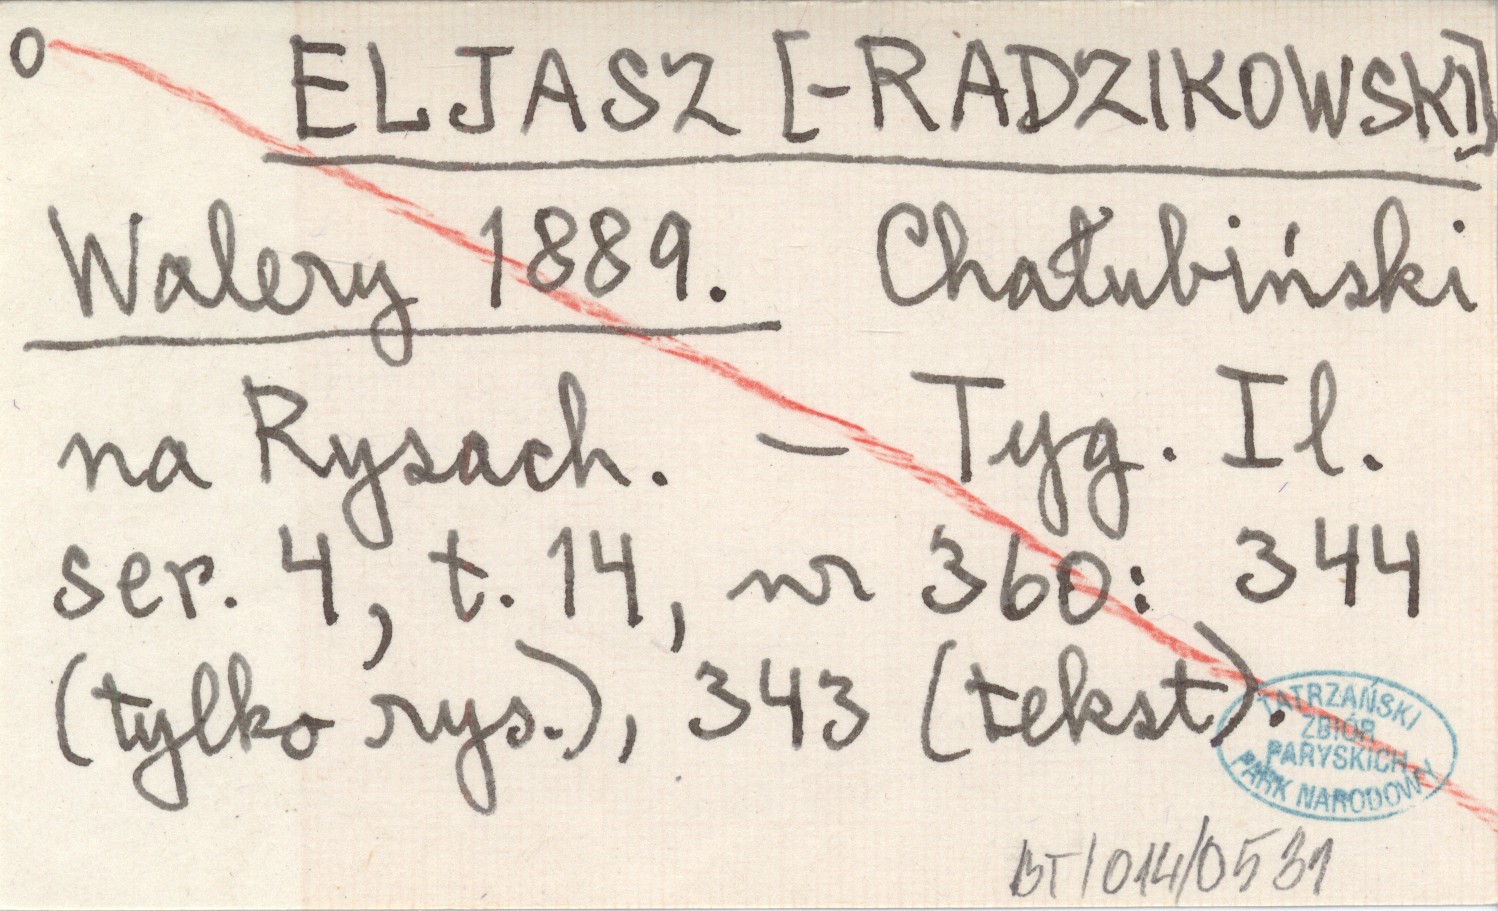 o ELJASZ [-RADZIKOWSKI]
Walery 1889. Chałubiński
na Rysach. — Tyg. Il.
ser. 4, t. 14, nr 360: 344
(tylko rys.), 343 (tekst).
TATRZAŃSKI
ZBIÓR
PARYSKICH
PARK NARODOWY
BT/014/0531